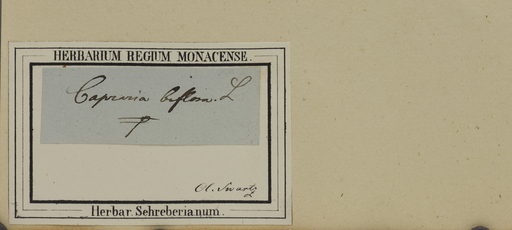 HERBARIUM REGIUM MONACENSE.
Capraria biflora. L
Cl. Swartz
Herbar. Schreberianum.